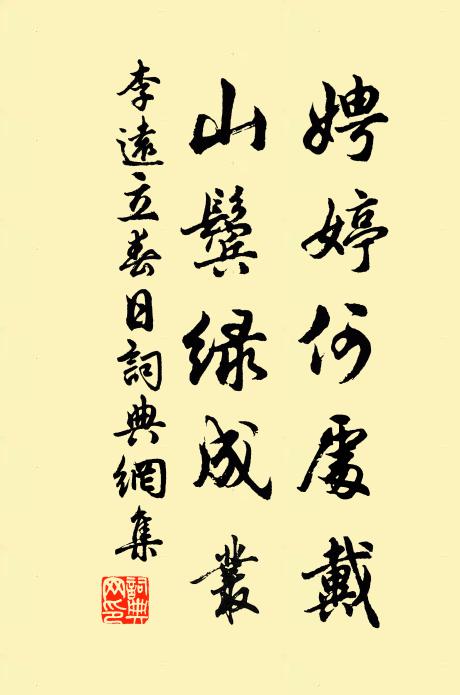 娉婷何處戴
山鬢綠成叢
李遠立春日詞典網集
詞典網印